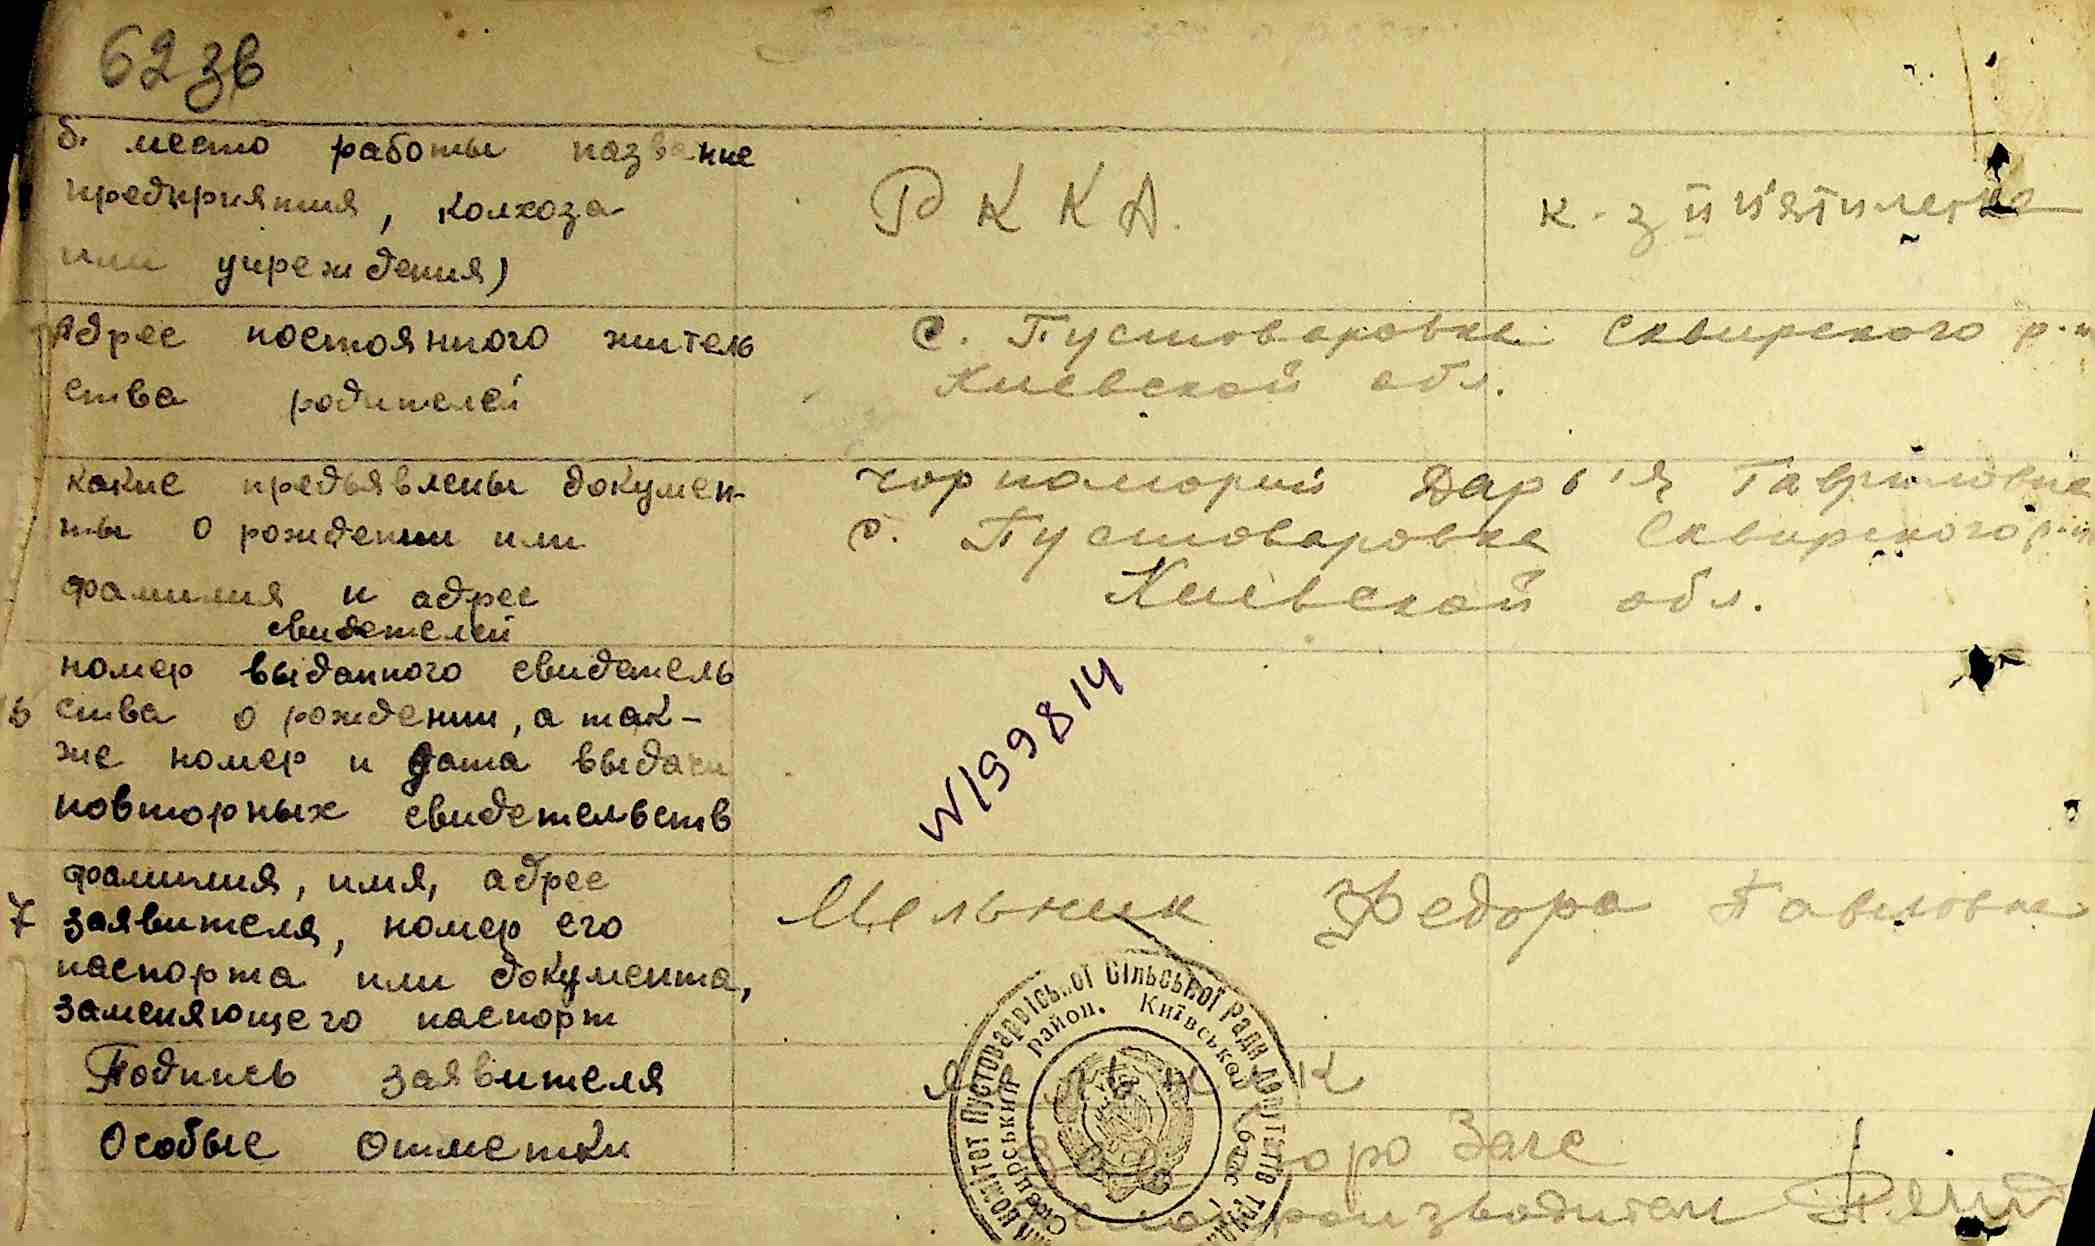 62 зв
б. место работы название
предприятия, колхоза
или учреждения)
Р К К А.
к-з ІІ п'ятилетка
Адрес постоянного житель
ства родителей
с. Пустоваровка Сквирского р-н
Киевской обл.
какие предъявлены докумен-
ты о рождении или
фамилия и адрес
свидетелей
Чорноморий Дарь'я Гавриловна
с. Пустоваровка Сквирского р-н
Киевской обл.
номер выданного свидетель
ства о рождении, а так-
же номер и дата выдачи
повторных свидетельств
№199814
7 фамилия, имя, адрес
заявителя, номер его
паспорта или документа,
заменяющего паспорт
Мельник Федора Павловна
Подпись заявителя
Особые отметки
Зав бюро Загс
Делопроизводитель
комітет Пустоварівської Сільської Ради депутатів
Сквирський район. Київської област